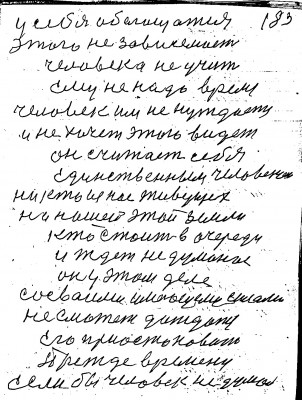 у себя обогощатся 183
этого не зависемост
человека не учит
ему не надо время
человек им не нуждаету
и не хочет этого видет
он считает себя
единственным человеком
никто из нас живущих
на нашей этой земли
кто стоит в очереди
и ждет не думоное
он у этом деле
со своими имеющими силами
не сможет дождату
его приостоновит
прежде времени
если бы человек не думал